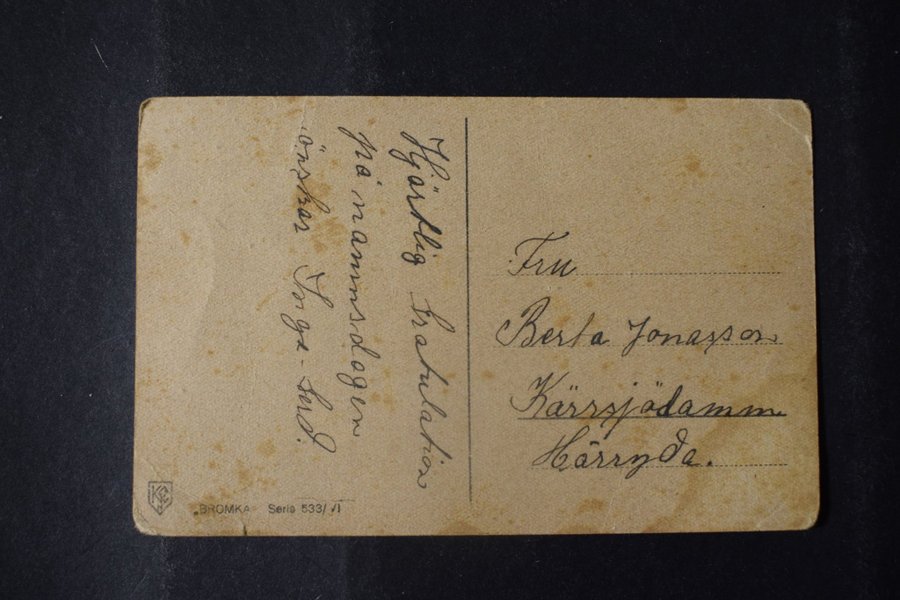 Hjärtlig Gratulation
på namnsdagen
önskar Inga-Gerd.
Fru
Berta Jonasson
Kärrsjödamm
Härryda.
"BROMKA" Serie 533/VI